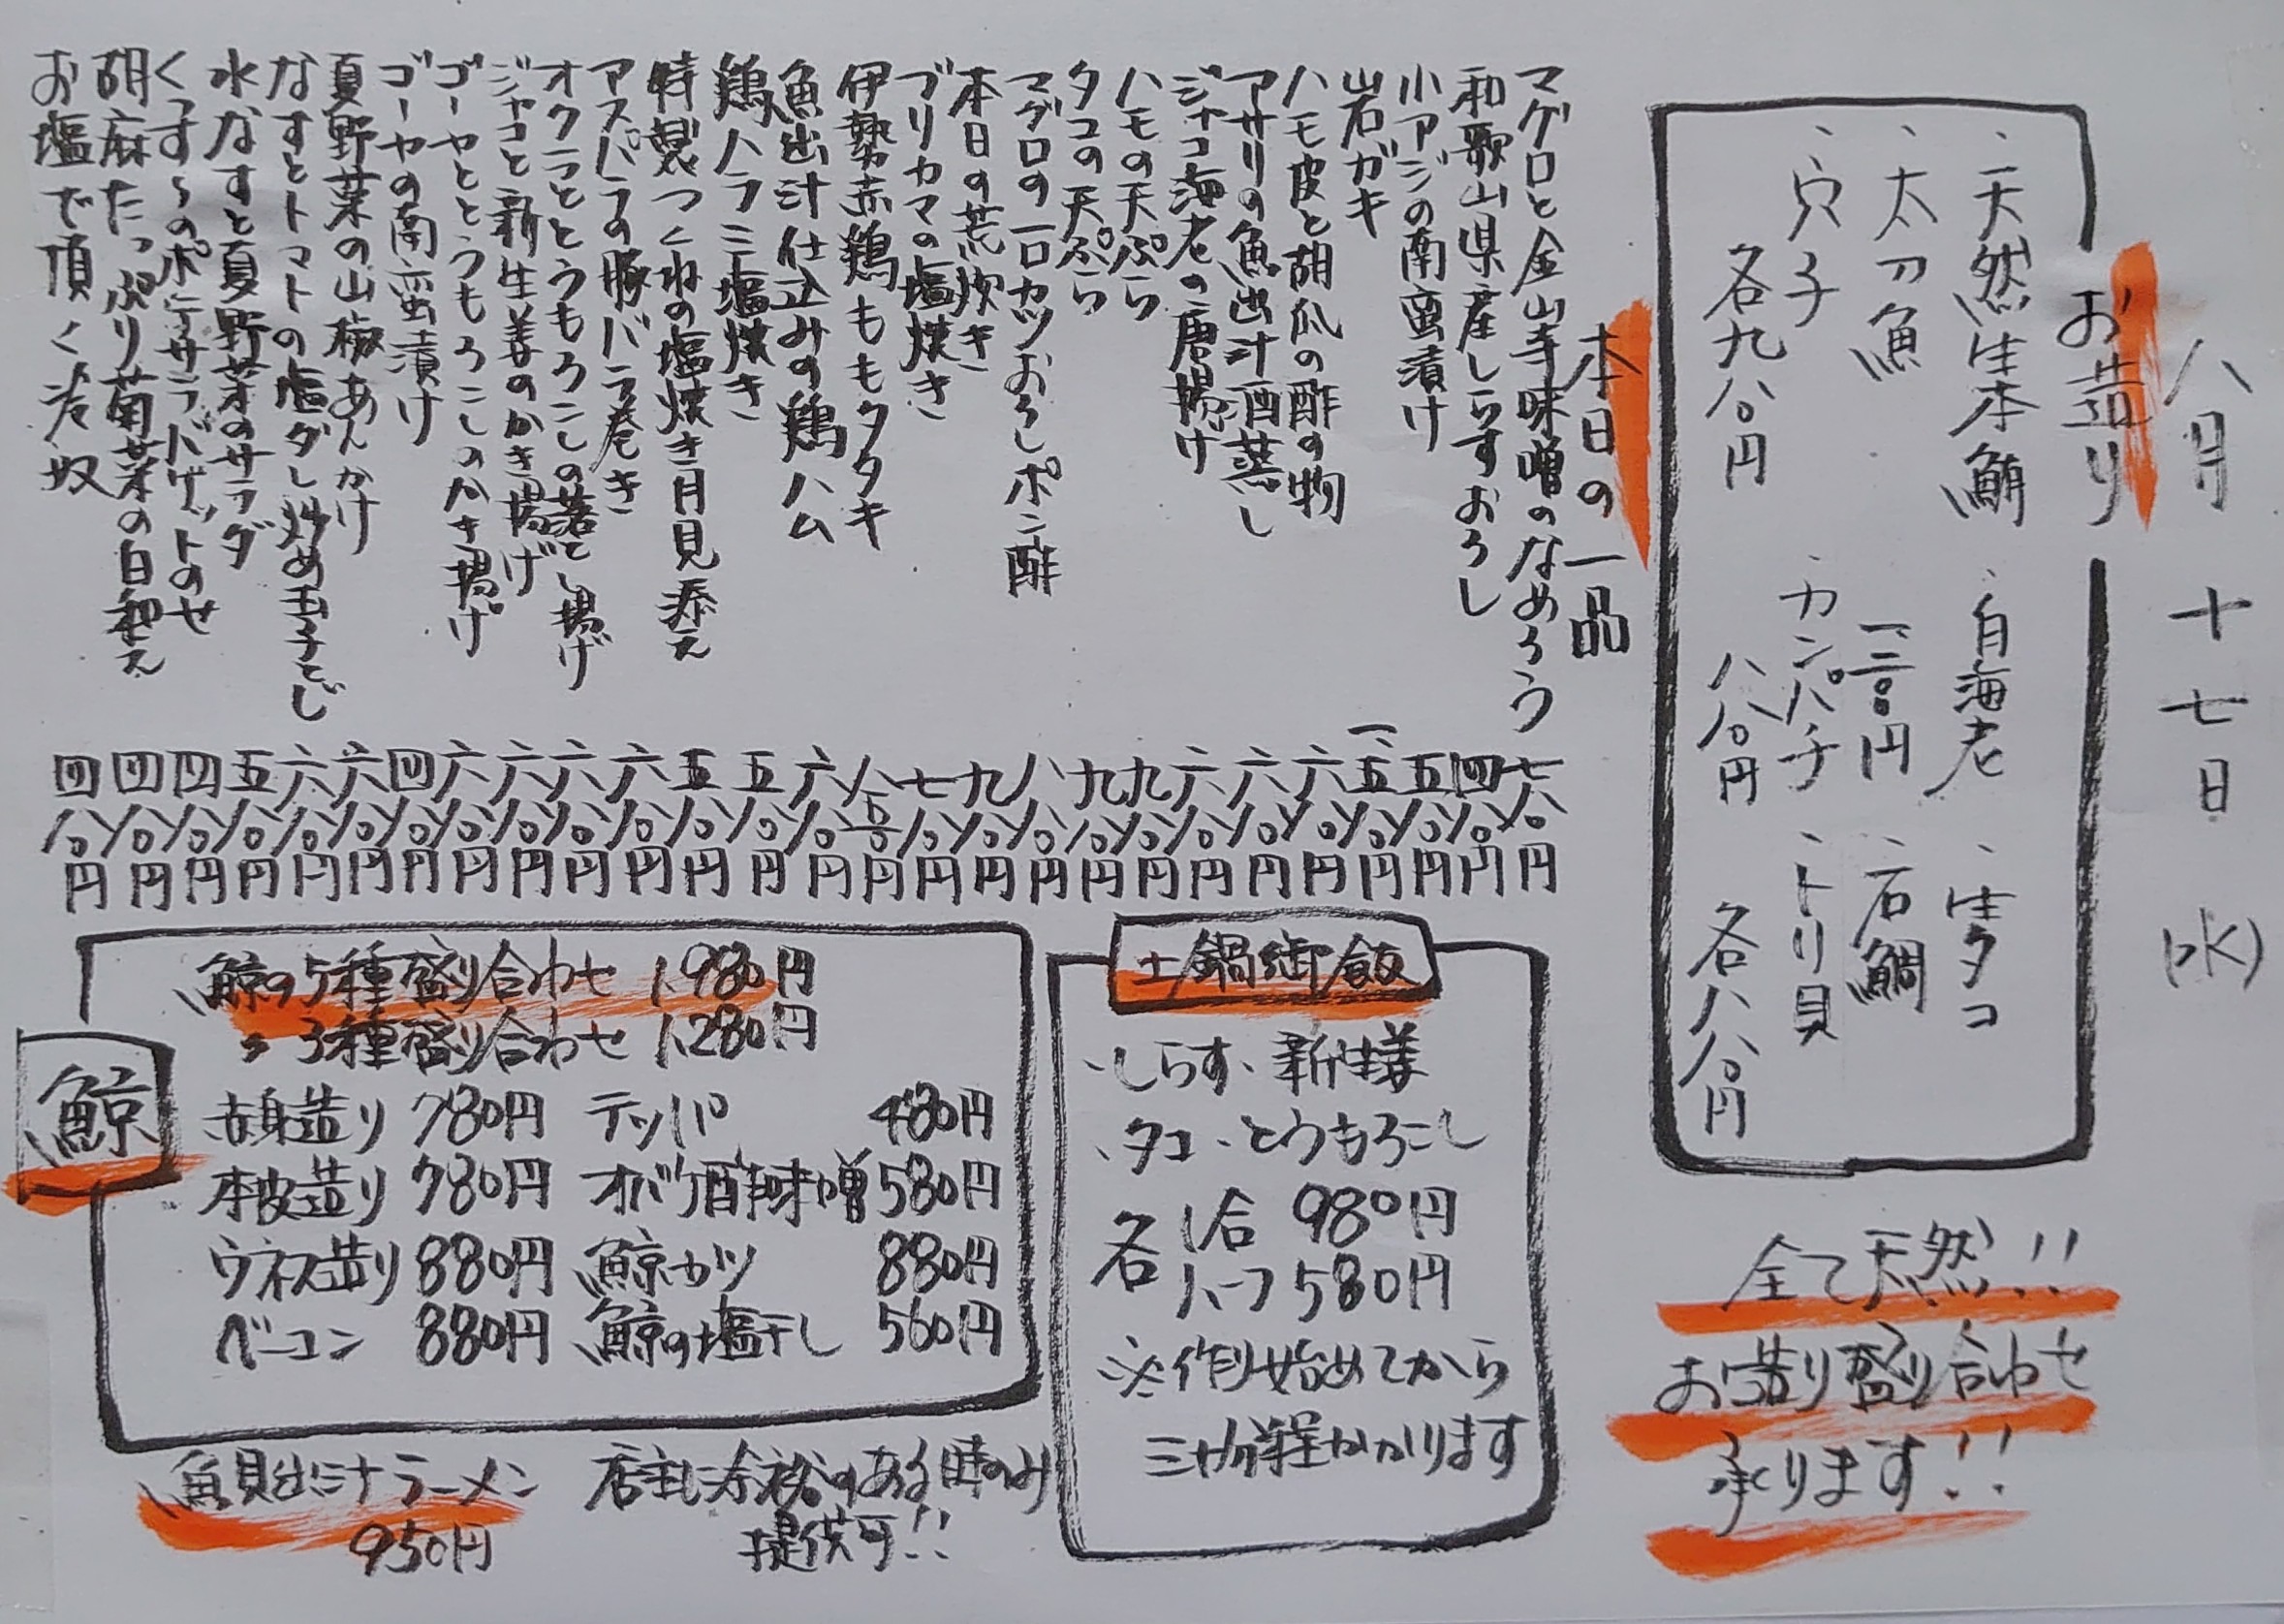 八月十七日(水)
お造り
、天然生本鮪 、白海老 、生タコ
、太刀魚 一二八〇円 、石鯛
、穴子 、カンパチ 、トリ貝
各九八〇円 八八〇円 各八八〇円
全て天然!!
お造り盛り合わせ
承ります!!
本日の一品
マグロと金山寺味噌のなめろう 七八〇円
和歌山県産しらすおろし 四八〇円
小アジの南蛮漬け 五八〇円
岩ガキ 一、五八〇円
ハモ皮と胡瓜の酢の物 六八〇円
アサリの魚出汁酒蒸し 六八〇円
ジャコ海老の唐揚げ 六八〇円
ハモの天ぷら 九八〇円
タコの天ぷら 九八〇円
マグロの一口カツおろしポン酢 八八〇円
本日の荒炊き 九八〇円
ブリカマの塩焼き 七八〇円
伊勢赤鶏ももタタキ 八五〇円
魚出汁仕込みの鶏ハム 六八〇円
鶏ハラミ塩焼き 五八〇円
特製つくねの塩焼き月見添え 五八〇円
アスパラの豚バラ巻き 六八〇円
オクラととうもろこしの落とし揚げ 六八〇円
ジャコと新生姜のかき揚げ 六八〇円
ゴーヤととうもろこしのかき揚げ 六八〇円
ゴーヤの南蛮漬け 四八〇円
夏野菜の山椒あんかけ 六八〇円
なすとトマトの塩ダレ炒め玉子とじ 六八〇円
水なすと夏野菜のサラダ 五八〇円
くずし々のポテサラバゲットのせ 四八〇円
胡麻たっぷり菊菜の白和え 四八〇円
お塩で頂く冷奴 四八〇円
土鍋御飯
、しらす、新生姜
、タコ、とうもろこし
各1合 980円
ハーフ 580円
※作り始めてから
三十分程かかります
鯨
鯨の5種盛り合わせ 1,980円
〃 3種盛り合わせ 1,280円
赤身造り 780円 テッパ 480円
本皮造り 780円 オバケ酢味噌 580円
ウネス造り 880円 鯨カツ 880円
ベーコン 880円 鯨の塩干し 560円
魚貝出汁ラーメン
950円
店主に余裕のある時のみ
提供可!!